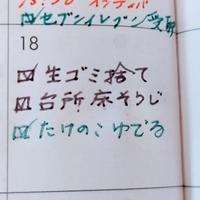 セブンイレブン受取
18
生ゴミ捨て
台所床そうじ
たけのこゆでる